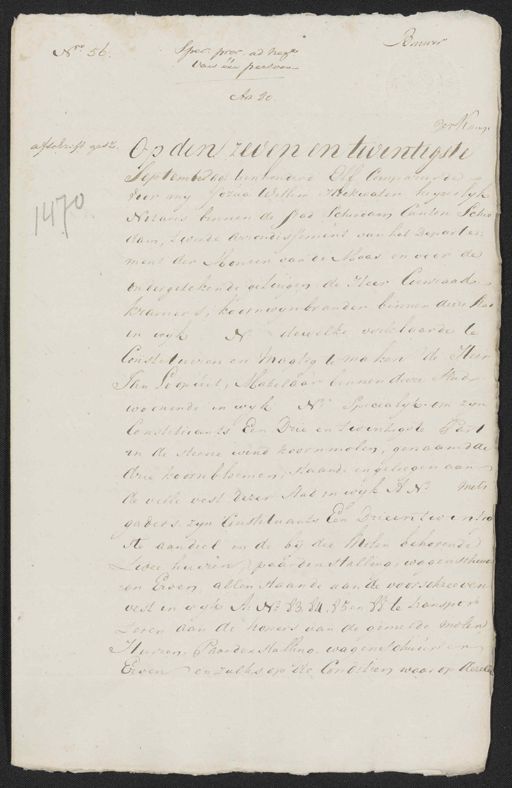 No 56.
Spec. proc. ad neg.
van één persoon
Ao 20.
afschrift get.
1470
Op den zeven en twintigste
September agtien honderd Elf Compareerde
voor my Jozua Willem Keyserlyk
Notaris binnen de stad Schiedam Canton Schie
dam, tweede arrondissement van het Departe
ment der Monden van de Maas en voor de
ondergetekende getuigen, de Heer Coenraad
Kramers, koornwynbrander binnen deze Stad
in wyk N dewelke verklaarde te
Constitueren en magtig te maken de Heer
Jan Makelaar binnen deze Stad
woonende in wyk No Specialyk om zyn
Constituants Een Drie en twintigste Part
in de steene wind koornmolen, genaamd de
drie koornbloemen, staande en gelegen aan
de veste dezer Stad in wyk A No mits
gaders zyn Constituants Een Drieentwintig
ste aandeel in de by die Molen behorende
twee huizen, paardenstalling, wagenschuur
en Erven, allen staande aan de voorschreeven
vest in wyk A No 83. 84. 85 en te transpor
teren aan de kopers van de gemelde molen
Huizen, Paardestalling wagenschuur en
Erven en zulks op die Conditien, waar op dezelve